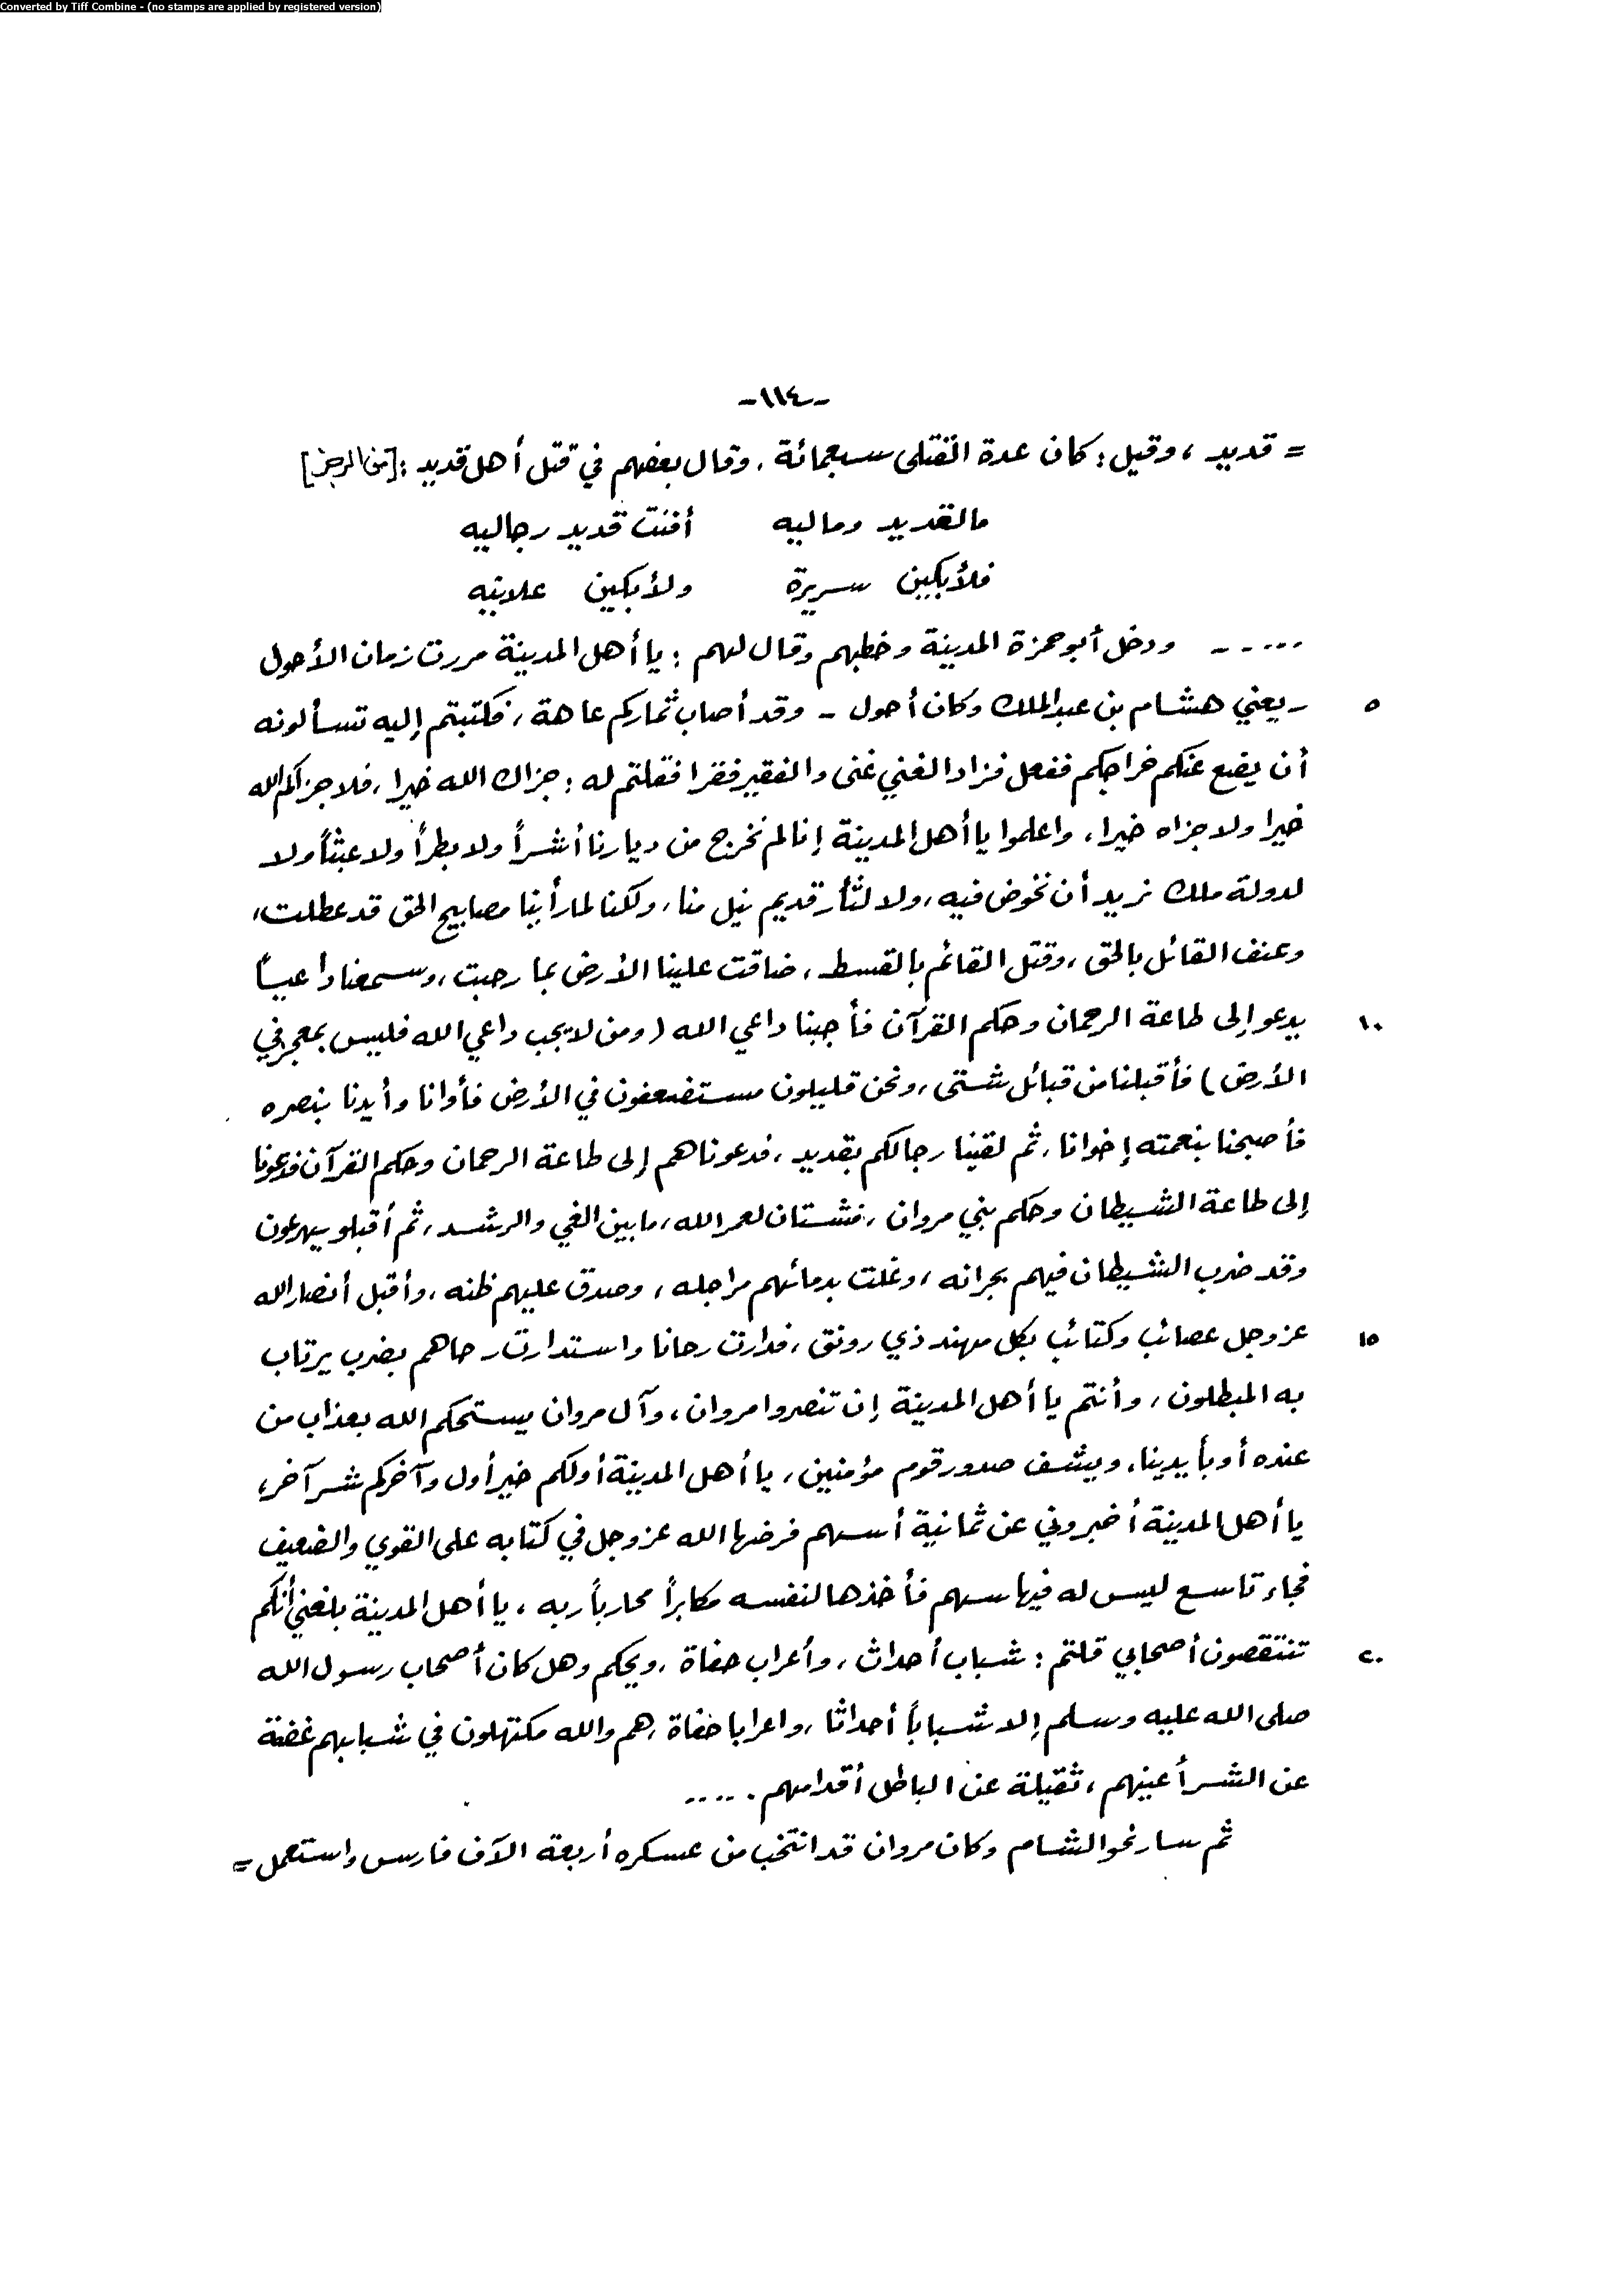 Converted by Tiff Combine - (no stamps are applied by registered version)
-١١٤-
= قديد، وقيل: كان عدة القتلى سبعمائة. وقال بعضهم في قتل أهل قديد: [من الرجز]
مالقديد وماليه أفنت قديد رجاليه
فلأبكين سريرة ولأبكين علانيه
..... ودخل أبو حمزة المدينة وخطبهم وقال لهم: يا أهل المدينة مررت زمان الأحول
٥ - يعني هشام بن عبدالملك وكان أحول - وقد أصاب ثماركم عاهة، فكتبتم إليه تسألونه
أن يضع عنكم خراجكم ففعل فزاد الغني غنى والفقير فقرا فقلتم له: جزاك الله خيرا، فلا جزاكم الله
خيرا ولا جزاه خيرا. واعلموا يا أهل المدينة إنا لم نخرج من ديارنا أشراً ولا بطراً ولا عبثاً ولا
لدولة ملك نريد أن نخوض فيه، ولا لثأر قديم نيل منا، ولكنا لما رأينا مصابيح الحق قد عطلت،
وعنف القائل بالحق، وقتل القائم بالقسط، ضاقت علينا الأرض بما رحبت، وسمعنا داعياً
١٠ يدعو إلى طاعة الرحمان وحكم القرآن فأجبنا داعي الله (ومن لا يجب داعي الله فليس بمعجز في
الأرض) فأقبلنا من قبائل شتى، ونحن قليلون مستضعفون في الأرض فأوانا وأيدنا بنصره
فأصبحنا بنعمته إخوانا، ثم لقينا رجالكم بقديد، فدعوناهم إلى طاعة الرحمان وحكم القرآن فدعونا
إلى طاعة الشيطان وحكم بني مروان، فشتان لعمر الله، ما بين الغي والرشد، ثم أقبلو يهرعون
وقد ضرب الشيطان فيهم بجرانه، وغلت بدمائهم مراجله، وصدق عليهم ظنه، وأقبل أنصار الله
١٥ عز وجل عصائب وكتائب بكل مهند ذي رونق، فدارت رحانا واستدارت رحاهم بضرب يرتاب
به المبطلون، وأنتم يا أهل المدينة إن تنصروا مروان، وآل مروان يستحكم الله بعذاب من
عنده أو بأيدينا، ويشف صدور قوم مؤمنين، يا أهل المدينة أولكم خير أول وآخركم شر آخر،
يا أهل المدينة أخبروني عن ثمانية أسهم فرضها الله عز وجل في كتابه على القوي والضعيف
فجاء تاسع ليس له فيها سهم فأخذها لنفسه مكابراً محارباً ربه، يا أهل المدينة بلغني أنكم
٢٠ تنتقصون أصحابي قلتم: شباب أحداث، وأعراب حفاة، ويحكم وهل كان أصحاب رسول الله
صلى الله عليه وسلم إلا شباباً أحداثا، واعرابا حفاة، هم والله مكتهلون في شبابهم غضة
عن الشر أعينهم، ثقيلة عن الباطل أقدامهم. ....
ثم سار نحو الشام وكان مروان قد انتخب من عسكره أربعة الآف فارس واستعمل =